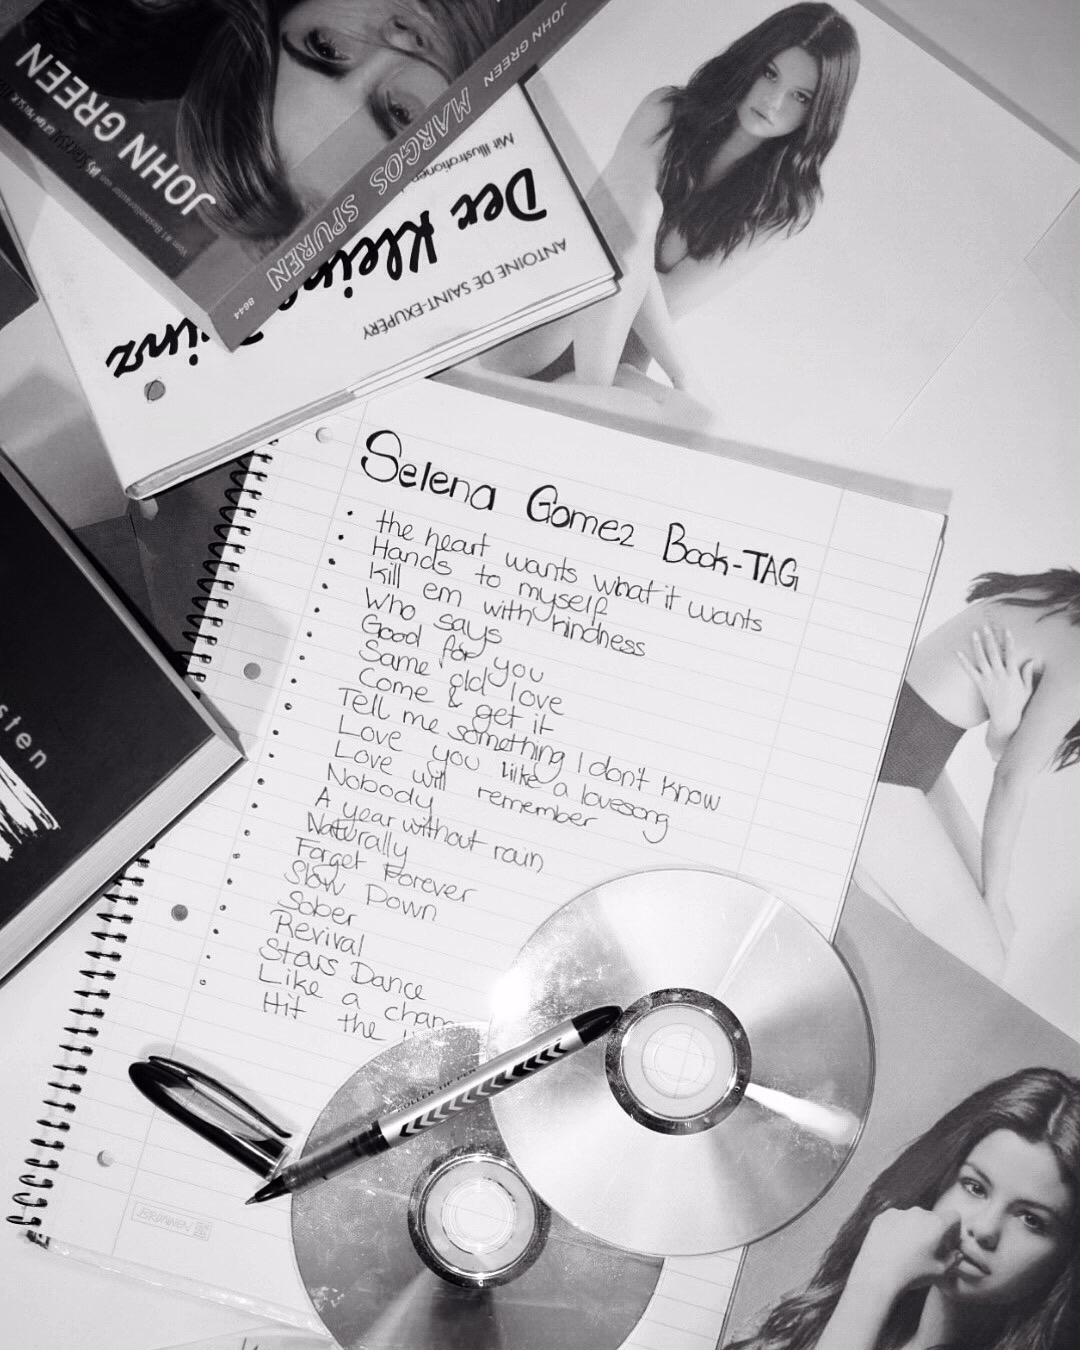 JOHN GREEN
JOHN GREEN MARGOS SPUREN 8644
Mit Illustrationen
Der Kleine Prinz
ANTOINE DE SAINT-EXUPÉRY
sten
Selena Gomez Book-TAG
• the heart wants what it wants
• Hands to myself
• Kill em with kindness
• Who says
• Good for you
• Same old love
• Come & get it
• Tell me something I don't know
• Love you like a lovesong
• Love will remember
• Nobody
• A year without rain
• Naturally
• Forget Forever
• Slow Down
• Sober
• Revival
• Stars Dance
• Like a cham
• Hit the
ROLLER TIP PEN
BRUNNEN